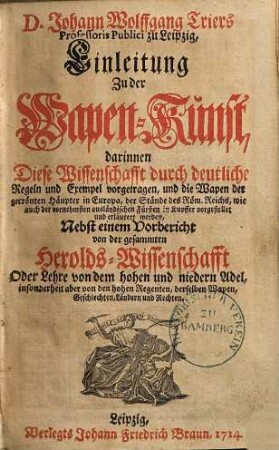 D. Johann Wolffgang Triers
Professoris Publici zu Leipzig,
Einleitung
Zu der
Wapen-Kunst,
darinnen
Diese Wissenschafft durch deutliche
Regeln und Exempel vorgetragen, und die Wapen der
gecrönten Häupter in Europa, der Stände des Röm. Reichs, wie
auch der vornehmsten ausländischen Fürsten in Kupffer vorgestellet
und erläutert werden,
Nebst einem Vorbericht
von der gesammten
Herolds-Wissenschafft
Oder Lehre von dem hohen und niedern Adel,
insonderheit aber von den hohen Regenten, derselben Wapen,
Geschlechten, Ländern und Rechten.
VEREIN
ZU
BAMBERG
Leipzig,
Verlegts Johann Friedrich Braun, 1714.